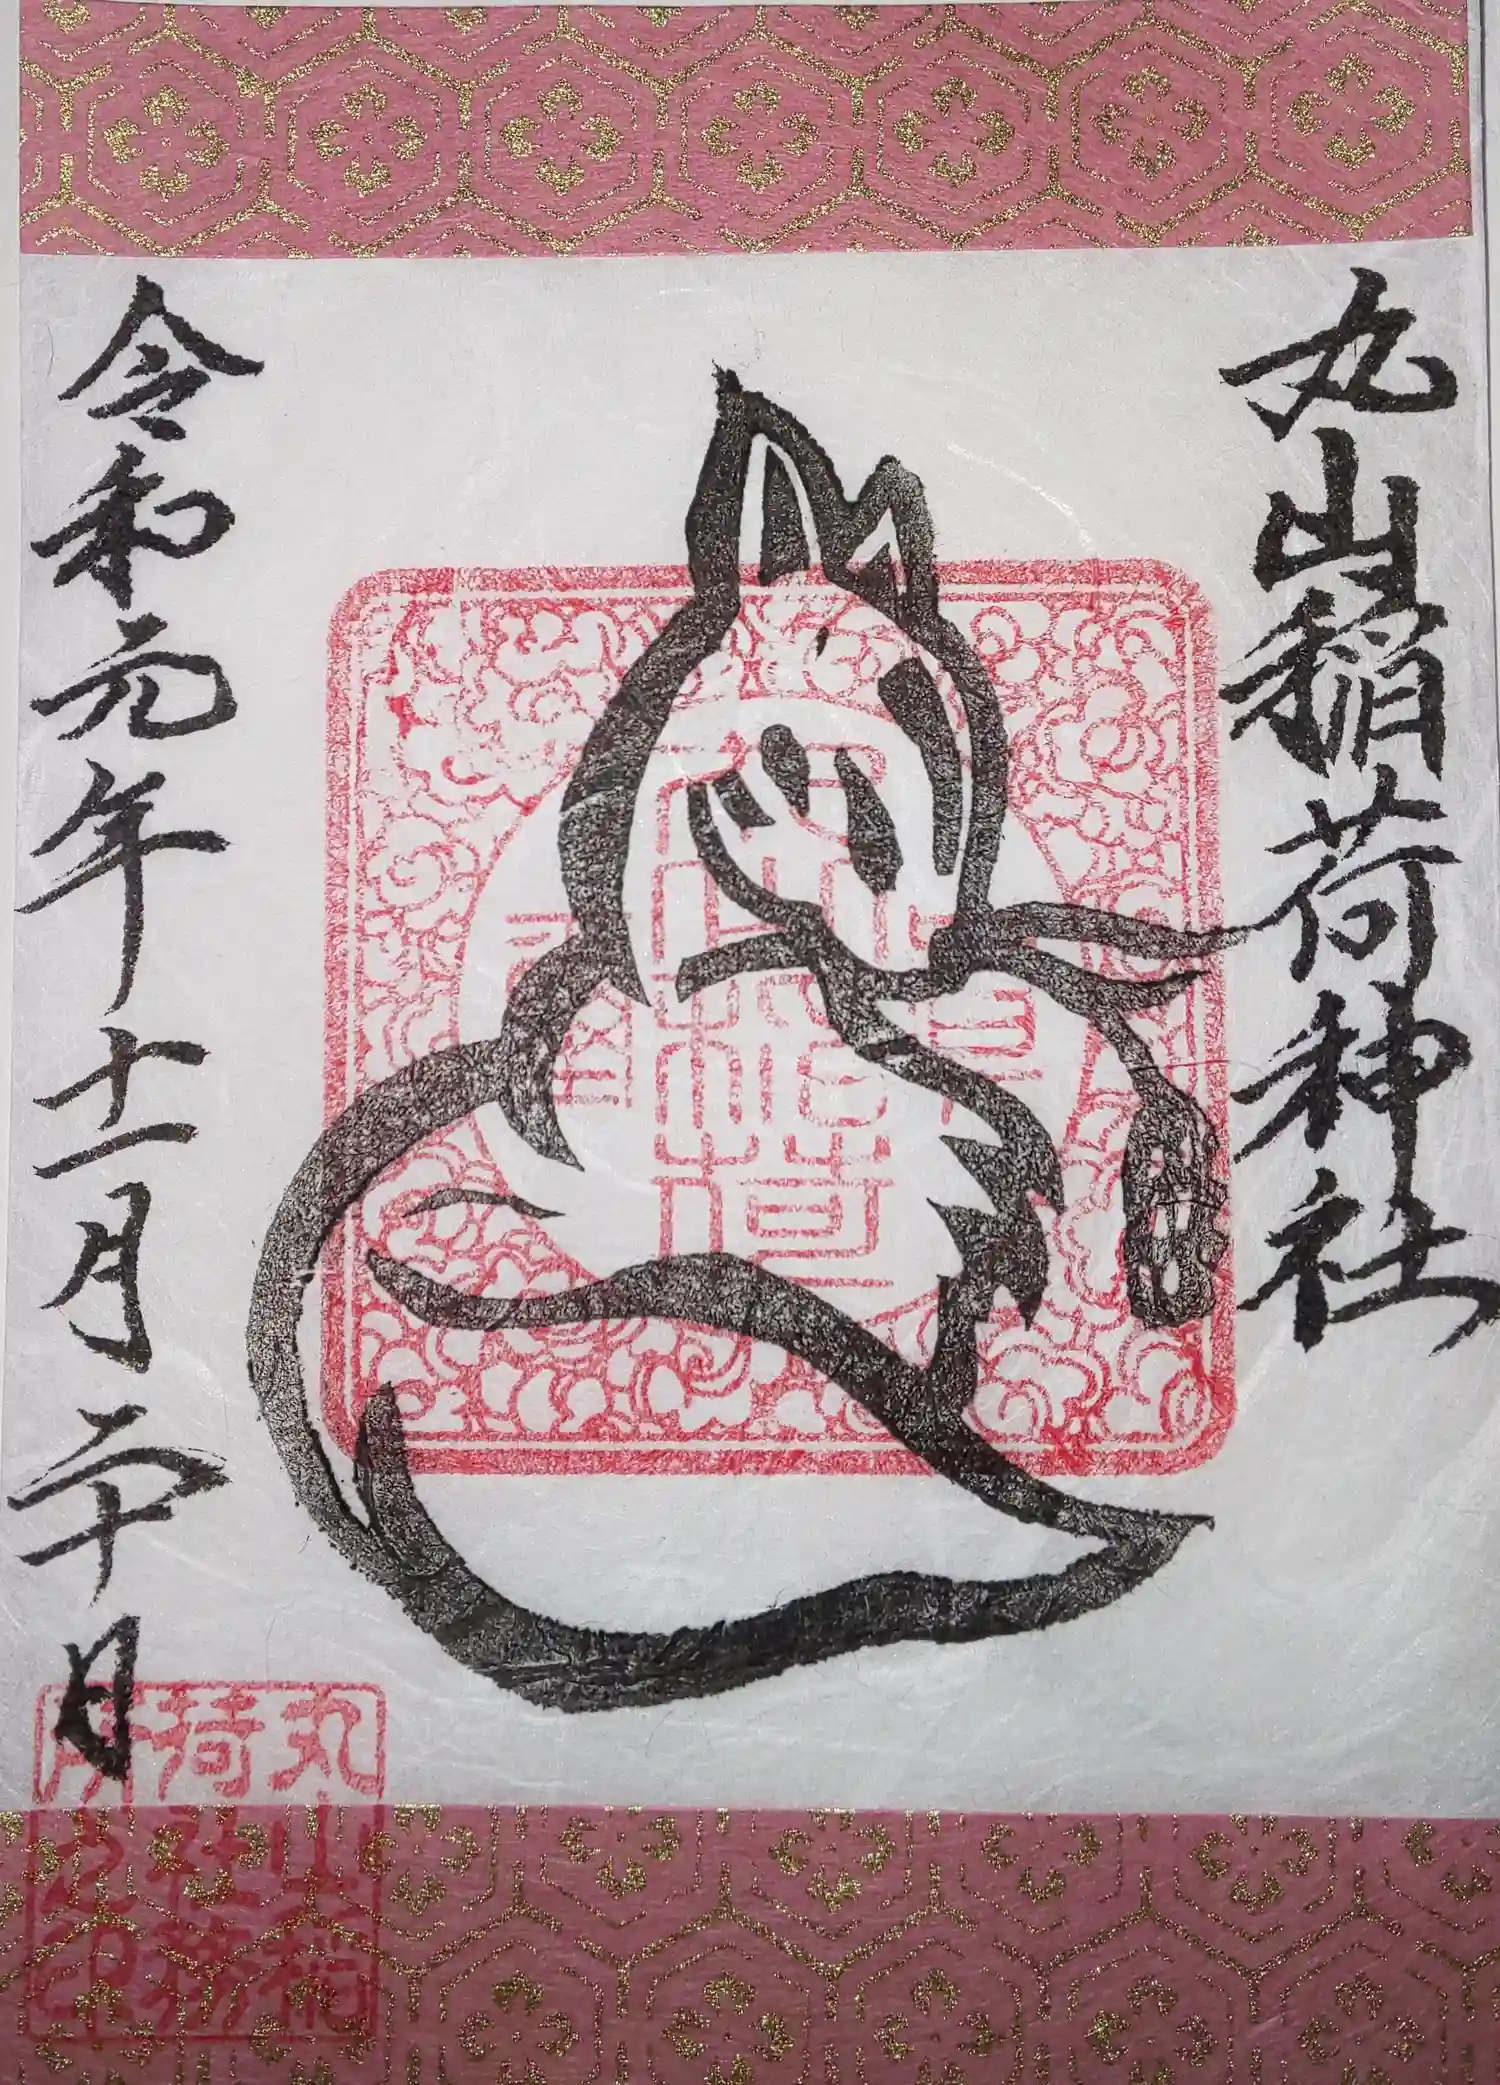 丸山稲荷神社
令和元年十一月二十日
丸山稲
荷社務
所之印